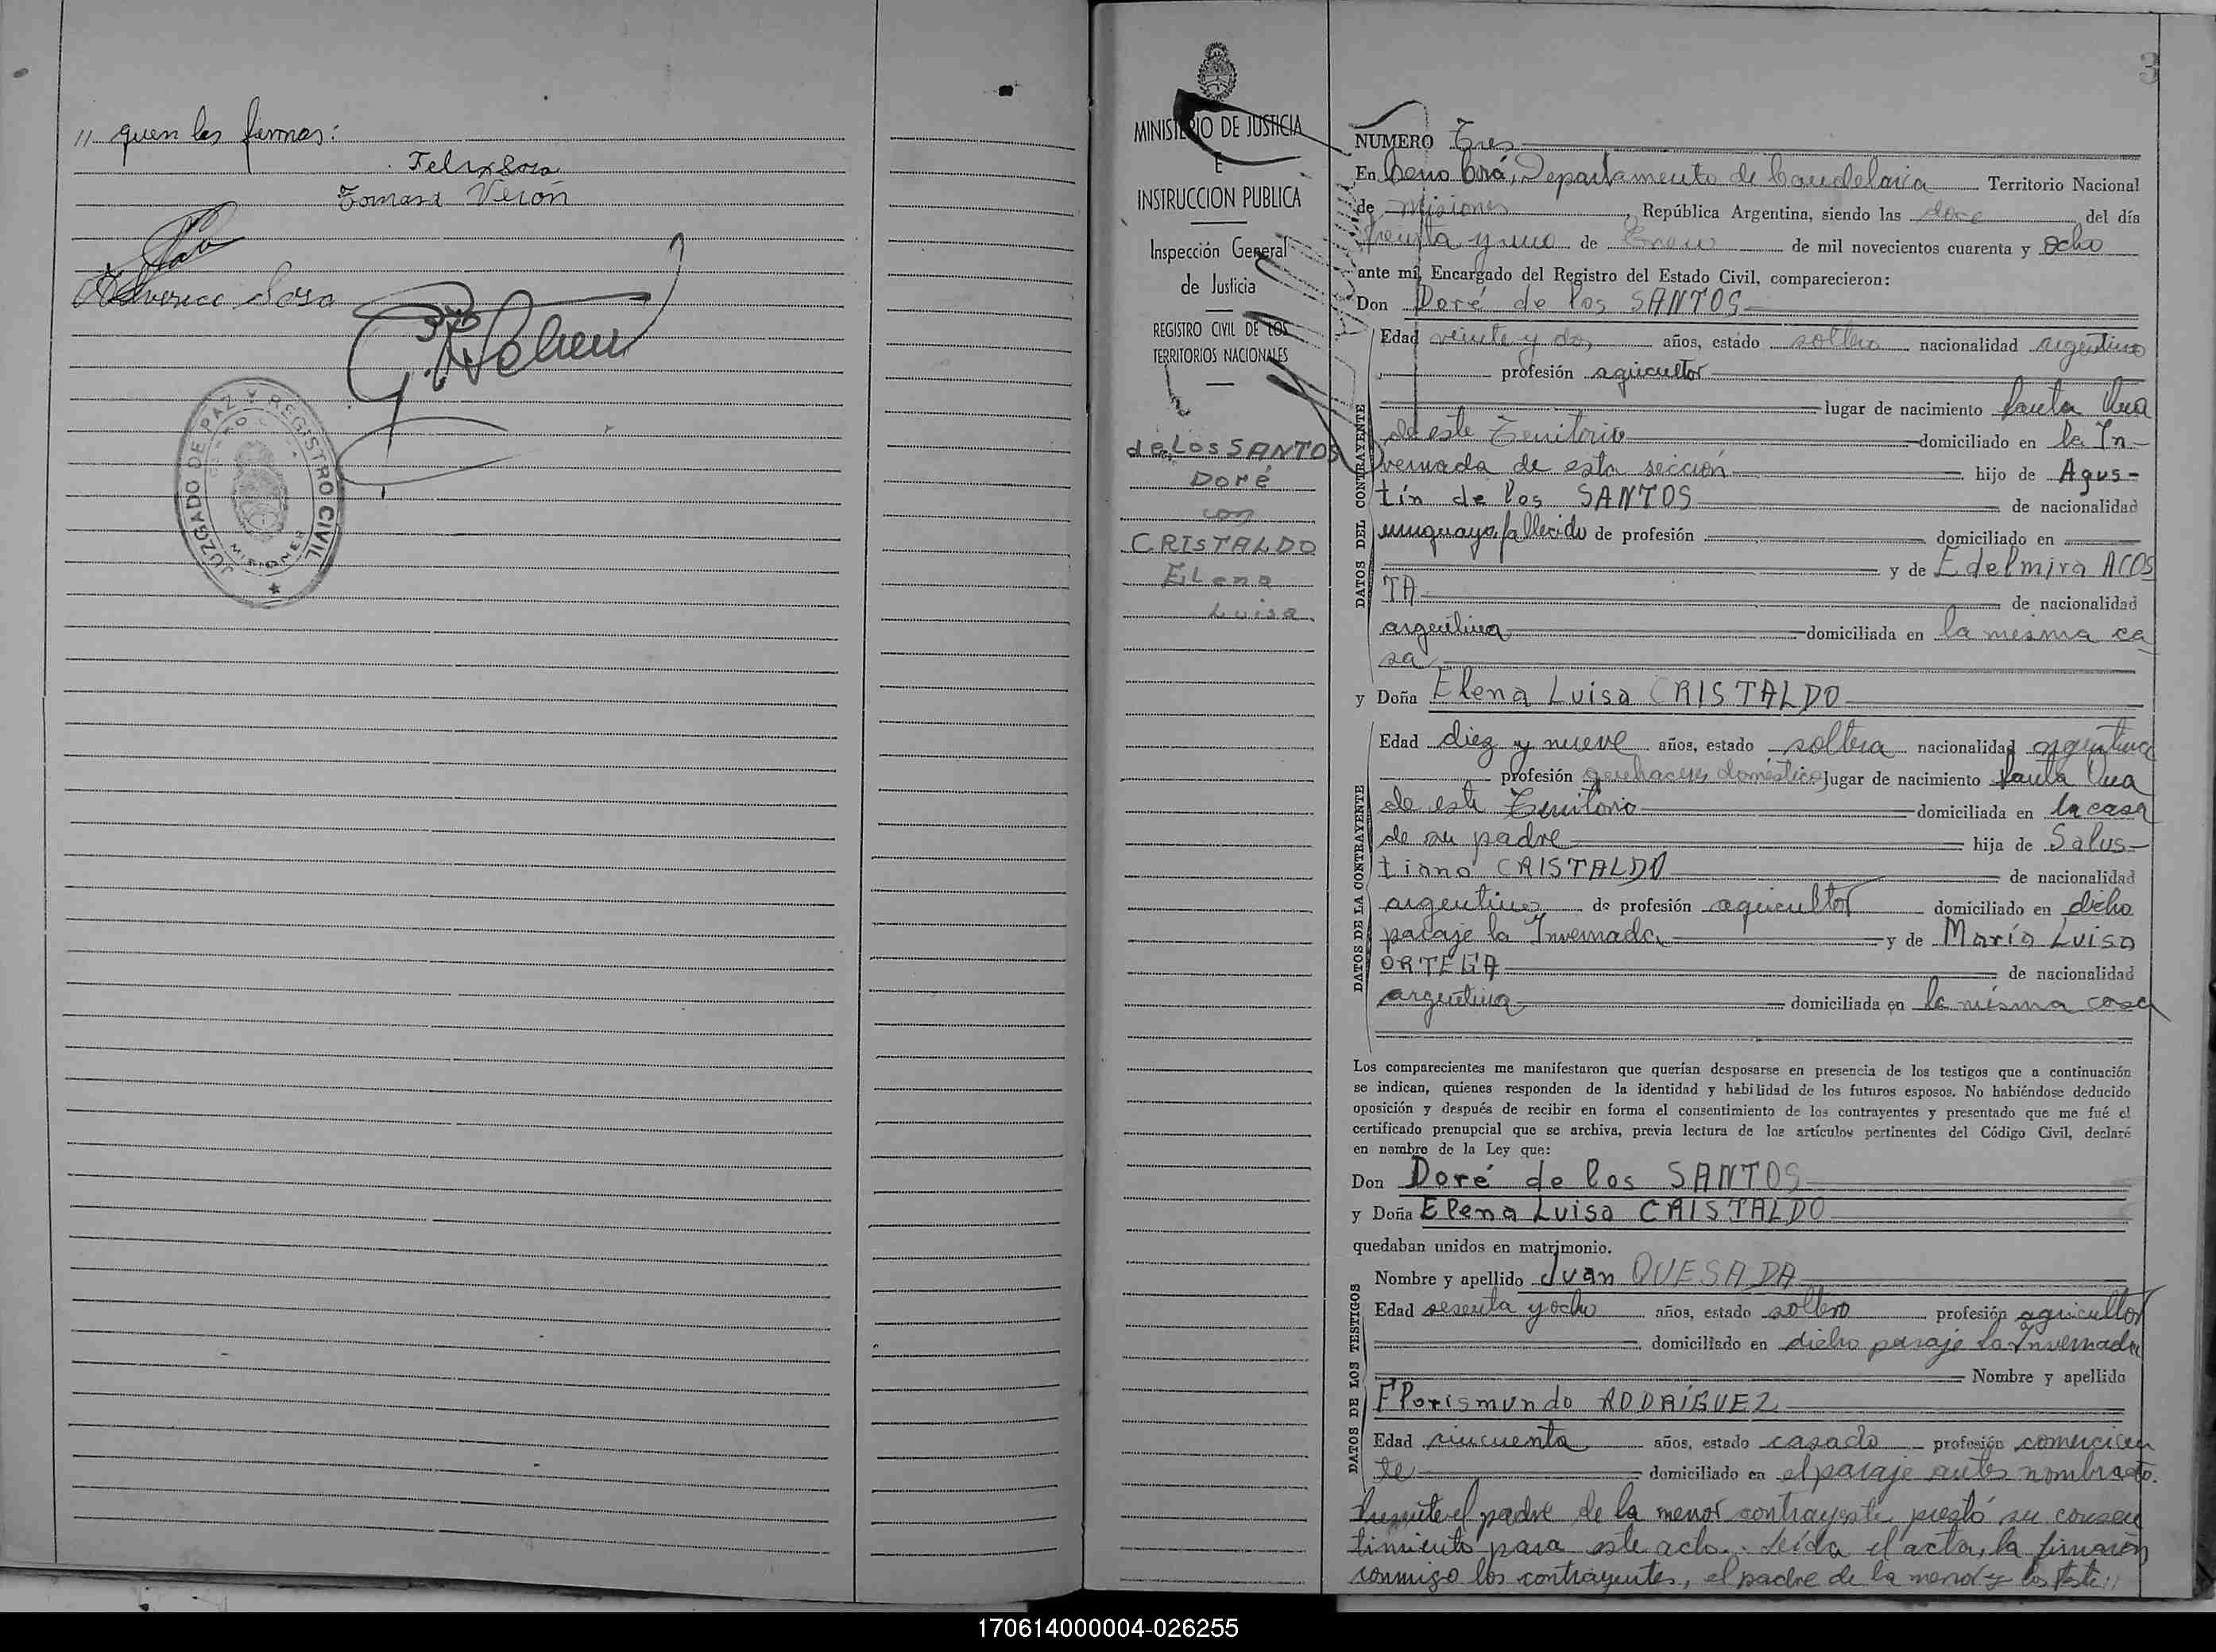 // quen les firmas:
Felix Sosa
Tomasa Verón
Sosa
JUZGADO DE PAZ Y REGISTRO CIVIL
MISIONES
3
MINISTERIO DE JUSTICIA
E
INSTRUCCION PUBLICA
Inspección General
de Justicia
REGISTRO CIVIL DE LOS
TERRITORIOS NACIONALES
de Los SANTOS
Doré
con
CRISTALDO
Elena
Luisa
NUMERO Tres
En Cerro Corá, Departamento de Candelaria Territorio Nacional
de Misiones, República Argentina, siendo las doce del día
treinta y uno de Enero de mil novecientos cuarenta y ocho
ante mí, Encargado del Registro del Estado Civil, comparecieron:
Don Doré de los SANTOS
DATOS DEL CONTRAYENTE
Edad veinte y dos años, estado soltero nacionalidad argentino
profesión agricultor
lugar de nacimiento Santa Ana
de este Territorio domiciliado en la In-
vernada de esta sección hijo de Agus-
tín de los SANTOS de nacionalidad
uruguayo, fallecido de profesión domiciliado en
y de Edelmira ACOS
TA de nacionalidad
argentina domiciliada en la misma ca
sa
y Doña Elena Luisa CRISTALDO
DATOS DE LA CONTRAYENTE
Edad diez y nueve años, estado soltera nacionalidad argentina
profesión quehaceres domésticos lugar de nacimiento Santa Ana
de este Territorio domiciliada en la casa
de su padre hija de Salus-
tiano CRISTALDO de nacionalidad
argentino de profesión agricultor domiciliado en dicho
paraje la Invernada y de María Luisa
ORTEGA de nacionalidad
argentina domiciliada en la misma casa
Los comparecientes me manifestaron que querían desposarse en presencia de los testigos que a continuación
se indican, quienes responden de la identidad y habilidad de los futuros esposos. No habiéndose deducido
oposición y después de recibir en forma el consentimiento de los contrayentes y presentado que me fué el
certificado prenupcial que se archiva, previa lectura de los artículos pertinentes del Código Civil, declaré
en nombre de la Ley que:
Don Doré de los SANTOS
y Doña Elena Luisa CRISTALDO
quedaban unidos en matrimonio.
DATOS DE LOS TESTIGOS
Nombre y apellido Juan QUESADA
Edad sesenta y ocho años, estado soltero profesión agricultor
domiciliado en dicho paraje La Invernada
Nombre y apellido
Florismundo RODRÍGUEZ
Edad cincuenta años, estado casado profesión comercian
te domiciliado en el paraje antes nombrado.
Presente el padre de la menor contrayente prestó su consen
timiento para este acto. Leída el acta, la firmaron
conmigo los contrayentes, el padre de la menor y los testi //
170614000004-026255